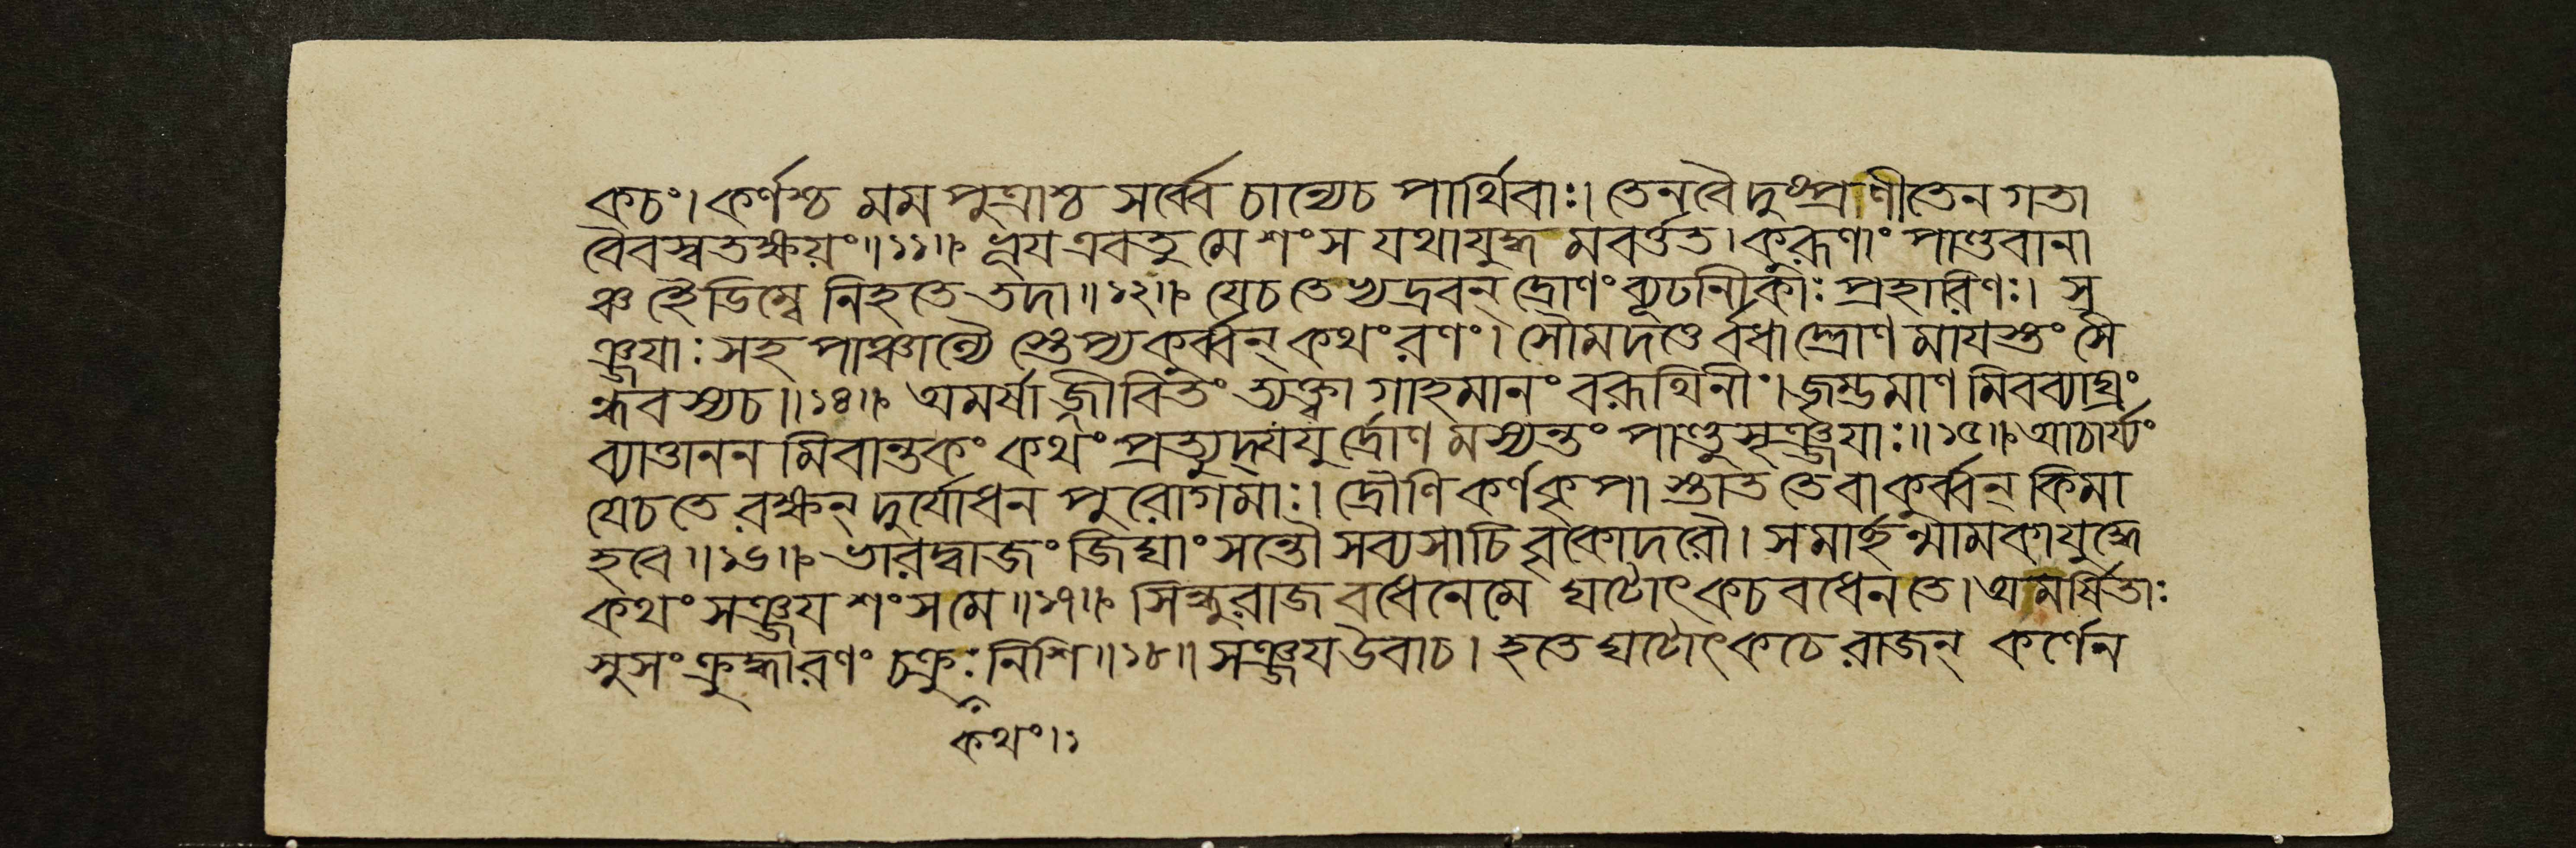 কচং। কর্ণশ্চ মম পুত্রাশ্চ সর্ব্বে চান্যেচ পার্থিবাঃ। তেনবৈ দুষ্প্রণীতেন গতা
বৈবস্বতক্ষয়ং॥১১॥ ভূয এবতু মে শংস যথাযুদ্ধ মবর্ত্তত। কুরূণাং পাণ্ডবানা
ঞ্চ হৈডিম্বে নিহতে তদা॥১২॥ যেচ তেভ্যদ্রবন্ দ্রোণং ব্যূঢানীকাঃ প্রহারিণঃ। সৃ
ঞ্জযাঃ সহ পাঞ্চাল্যৈ স্তেপ্যকুর্ব্বন্ কথং রণং। সৌমদত্তে র্বধা দ্দ্রোণ মাযস্তং সৈ
ন্ধবস্যচ॥১৪॥ অমর্ষা জ্জীবিতং ত্যক্ত্বা গাহমানং বরূথিনীং। জৃম্ভমাণ মিবব্যাঘ্রং
ব্যাত্তানন মিবান্তকং কথং প্রত্যুদ্যযু র্দ্রোণ মস্যন্তং পাণ্ডুসৃঞ্জযাঃ॥১৫॥ আচার্য্যং
যেচ তে রক্ষন্ দুর্যোধন পুরোগমাঃ। দ্রৌণি কর্ণকৃপা স্তাত তেবাকুর্ব্বন্ কিমা
হবে॥১৬॥ ভারদ্বাজং জিঘাং সন্তৌ সব্যসাচি বৃকোদরৌ। সমার্ছন্মামকা যুদ্ধে
কথং সঞ্জয শংসমে॥১৭॥ সিন্ধুরাজ বধেনেমে ঘটোৎকচ বধেন তে। অমর্ষিতাঃ
সুসং ক্রুদ্ধা রণং চক্রুঃ নিশি॥১৮॥ সঞ্জয উবাচ। হতে ঘটোৎকচে রাজন্ কর্ণেন
কথং।১